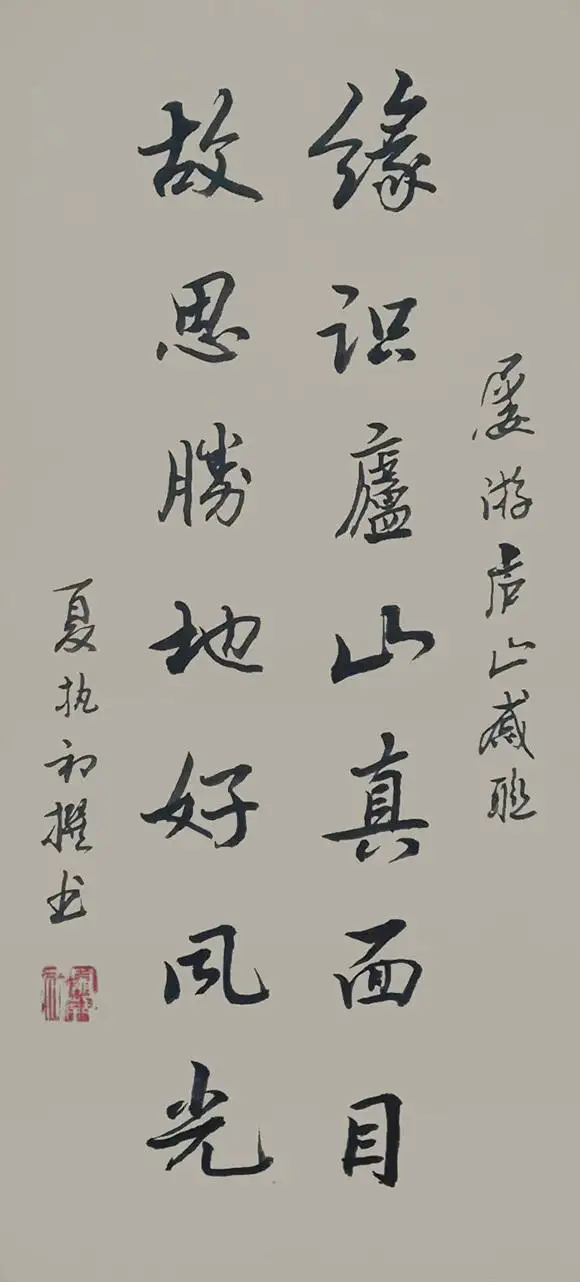 屡游庐山感联
缘识廬山真面目
故思勝地好风光
夏执初撰书